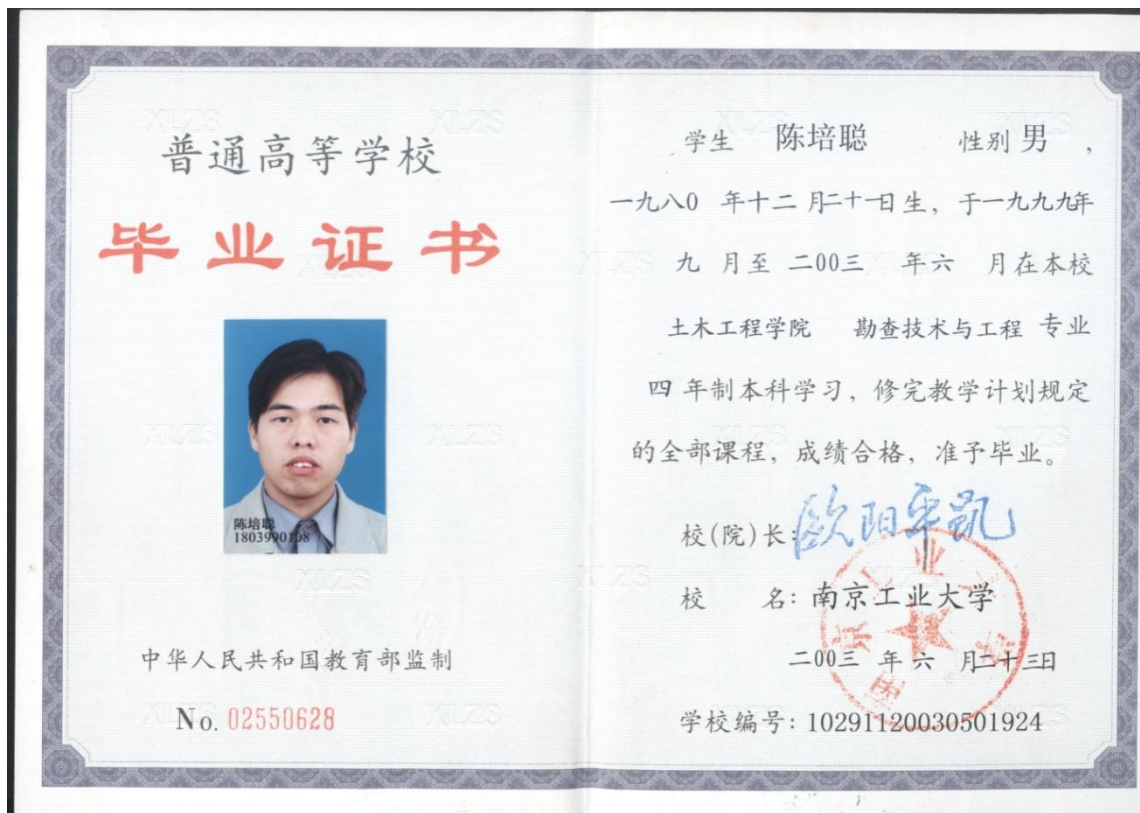 普通高等学校
毕业证书
陈培聪
1803990108
中华人民共和国教育部监制
No. 02550628
学生 陈培聪 性别 男 ,
一九八0 年十二 月二十一日生, 于一九九九年
九 月至 二00三 年六 月在本校
土木工程学院 勘查技术与工程 专业
四 年制本科学习, 修完教学计划规定
的全部课程, 成绩合格, 准予毕业。
校(院)长: 欧阳平凯
校 名: 南京工业大学
二00三 年 六 月二十三日
学校编号: 10291120030501924
XLZS